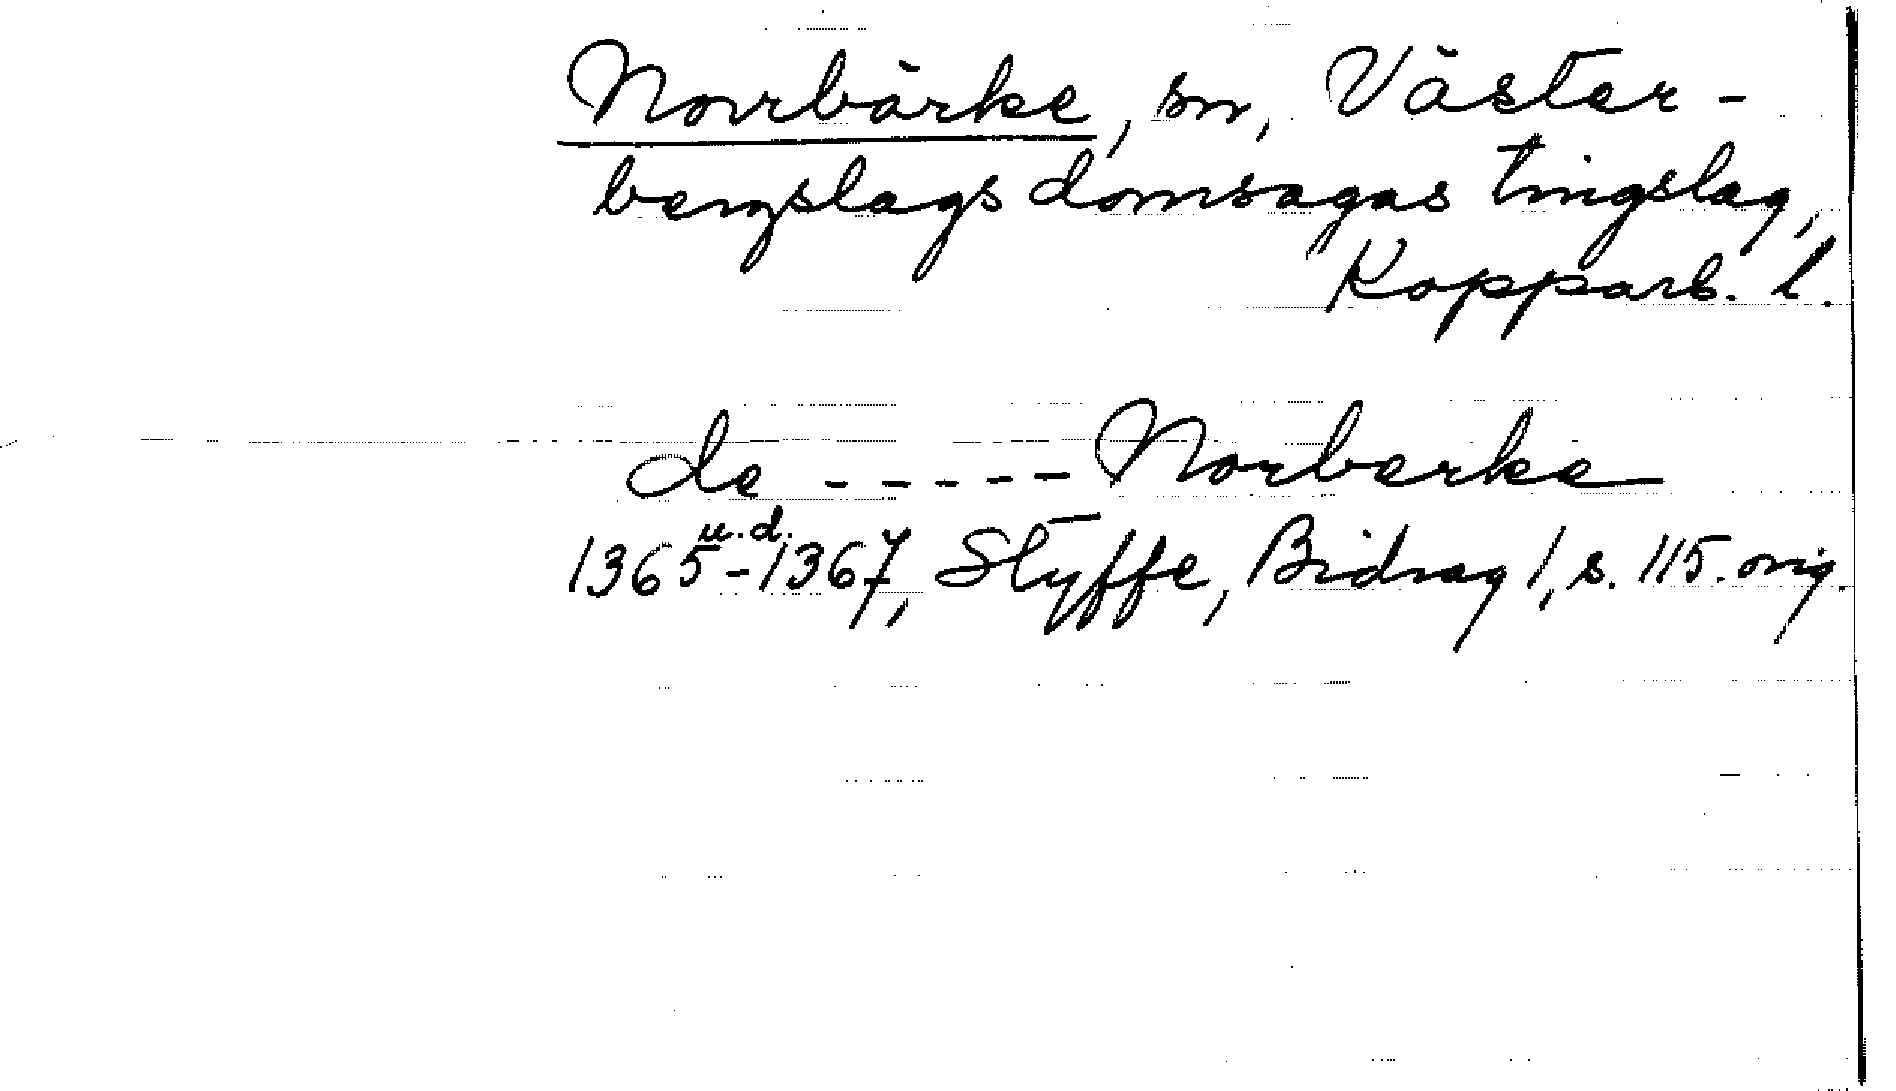 Norrbärke, sn, Väster-
bergslags domsagas tingslag,
Kopparb. l.
de ----- Norberke
1365-1367 u.d., Styffe, Bidrag 1, s. 115. orig.